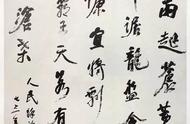 雨起蒼黄
踞龍盤今
慷宜將剩
霸王天若有
滄桑
人民解
七三